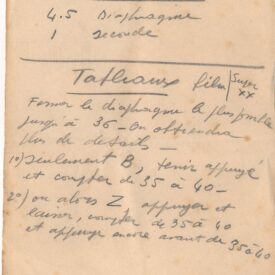 4.5 Diaphragme
1 seconde
Tableaux film Super XX
Fermer le diaphragme le plus possible
jusqu'à 36 - On obtiendra
plus de details -
1o) seulement B, tenir appuyé
et compter de 35 à 40 -
2o) ou alors Z appuyer et
laisser, compter de 35 à 40
et appuyer encore avant de 35 à 40